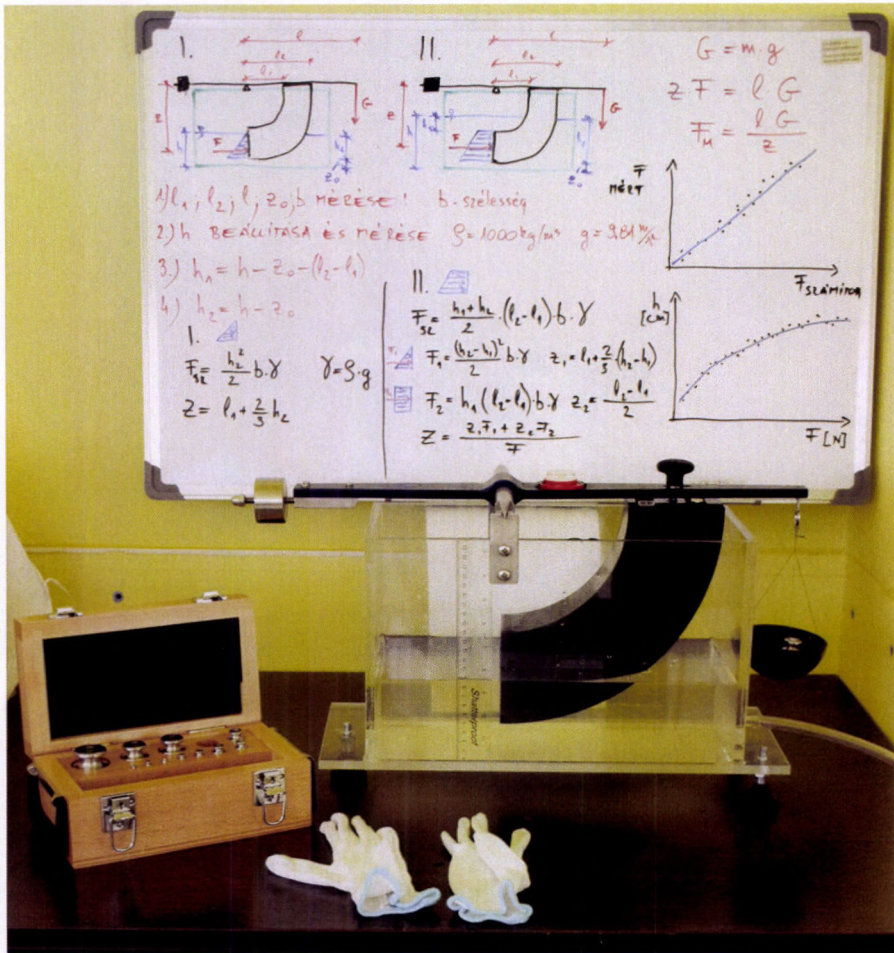 I.
l
l₂
l₁
G
z
F
h
h₂
z₀
II.
l
l₂
l₁
G
z
h₁
F
h
z₀
G = m·g
z·F = l·G
F_M = l G / z
1) l₁; l₂; l; z₀; b MÉRÉSE! b - szélesség
2) h BEÁLLÍTÁSA ÉS MÉRÉSE ρ=1000 kg/m³ g=9,81 m/s²
3.) h₁ = h - z₀ - (l₂ - l₁)
4.) h₂ = h - z₀
I.
F_SZ = h₂²/2 b·γ γ = ρ·g
Z = l₁ + 2/3 h₂
II.
F_SZ = (h₁+h₂)/2 · (l₂-l₁)·b·γ
F₁ F₁ = (h₂-h₁)²/2 b·γ z₁ = l₁ + 2/3·(h₂-h₁)
F₂ = h₁(l₂-l₁)·b·γ z₂ = (l₂-l₁)/2
Z = (z₁F₁ + z₂F₂)/F
F
MÉRT
F SZÁMÍTOTT
h
[cm]
F [N]
Shatterproof